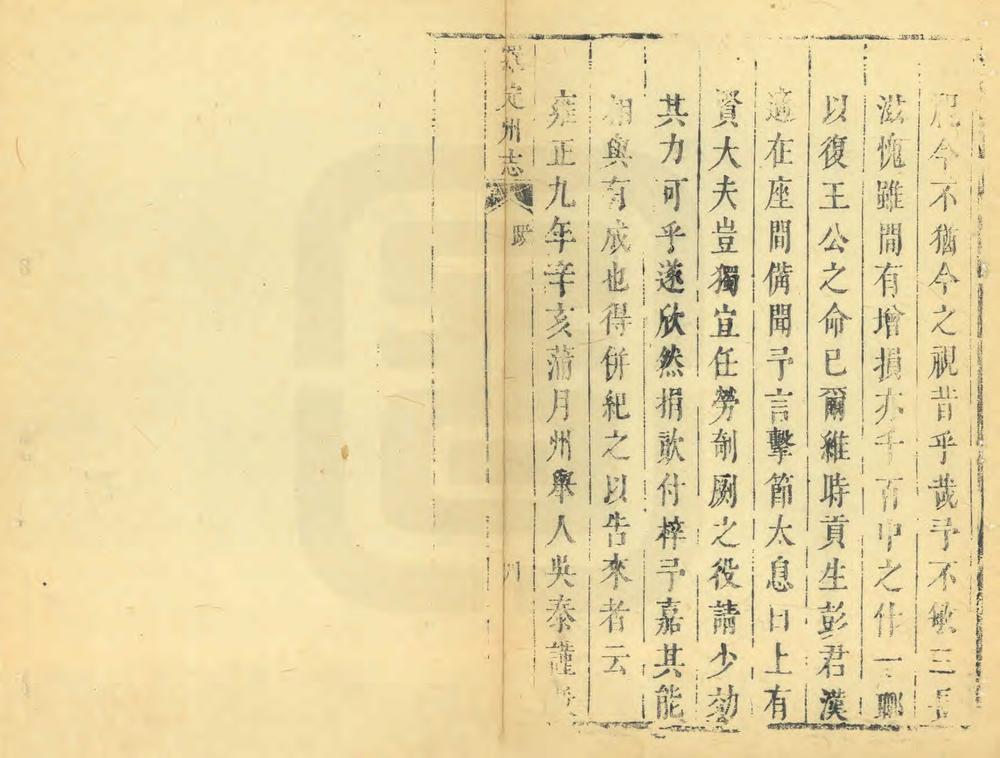 今不猶今之視昔乎哉予不敏三長
滋愧雖間有增損亦千百中之什一聊
以復王公之命已爾維時貢生彭君漢
適在座間備聞予言擊節太息曰上有
賢大夫豈獨宜任勞剞劂之役請少効
其力可乎遂欣然捐歀付梓予嘉其能
相與有成也得併紀之以告來者云
雍正九年辛亥蒲月州舉人吳泰謹
羅定州志 跋